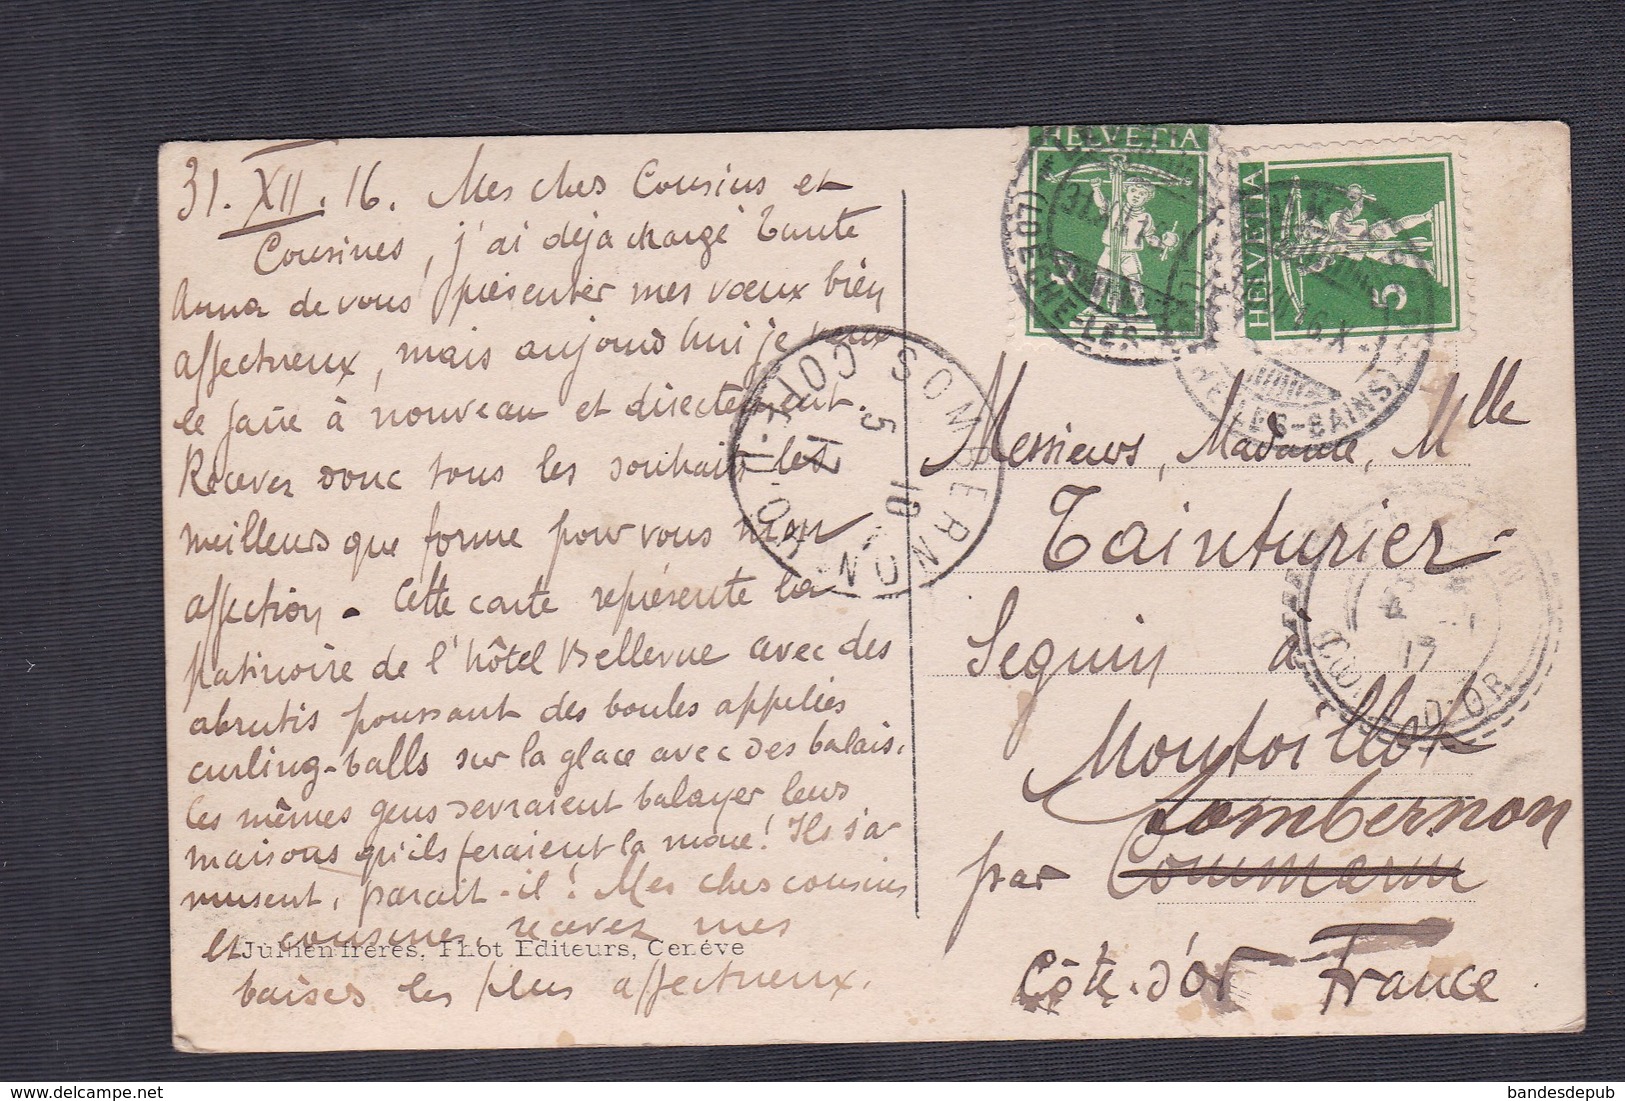 31. XII. 16. Mes chers Cousins et
Cousines, j'ai déjà chargé Tante
Anna de vous présenter mes vœux bien
affectueux, mais aujourd'hui je veux
le faire à nouveau et directement.
Recevez donc tous les souhaits les
meilleurs que forme pour vous mon
affection. Cette carte représente la
patinoire de l'hôtel Bellevue avec des
abrutis poussant des boules appelées
curling-balls sur la glace avec des balais.
Ces mêmes gens devraient balayer leurs
maisons qu'ils feraient la moue! Ils s'a-
musent, paraît-il! Mes chers cousins
et cousines, recevez mes
baisers les plus affectueux.
Jullien frères, Phot Editeurs, Genève
HELVETIA
HELVETIA
5
(LOÈCHE-LES-
31.XII
16.X
LES-BAINS)
SOMBERNON
5
1
10
CÔTE-D'OR
Messieurs, Madame, Mlle
Tainturier-
Seguin à
Montoillot
Sombernon
par Commarin
Côte-d'Or France
4
17
D'OR
bandesdepub.com
bandesdepub